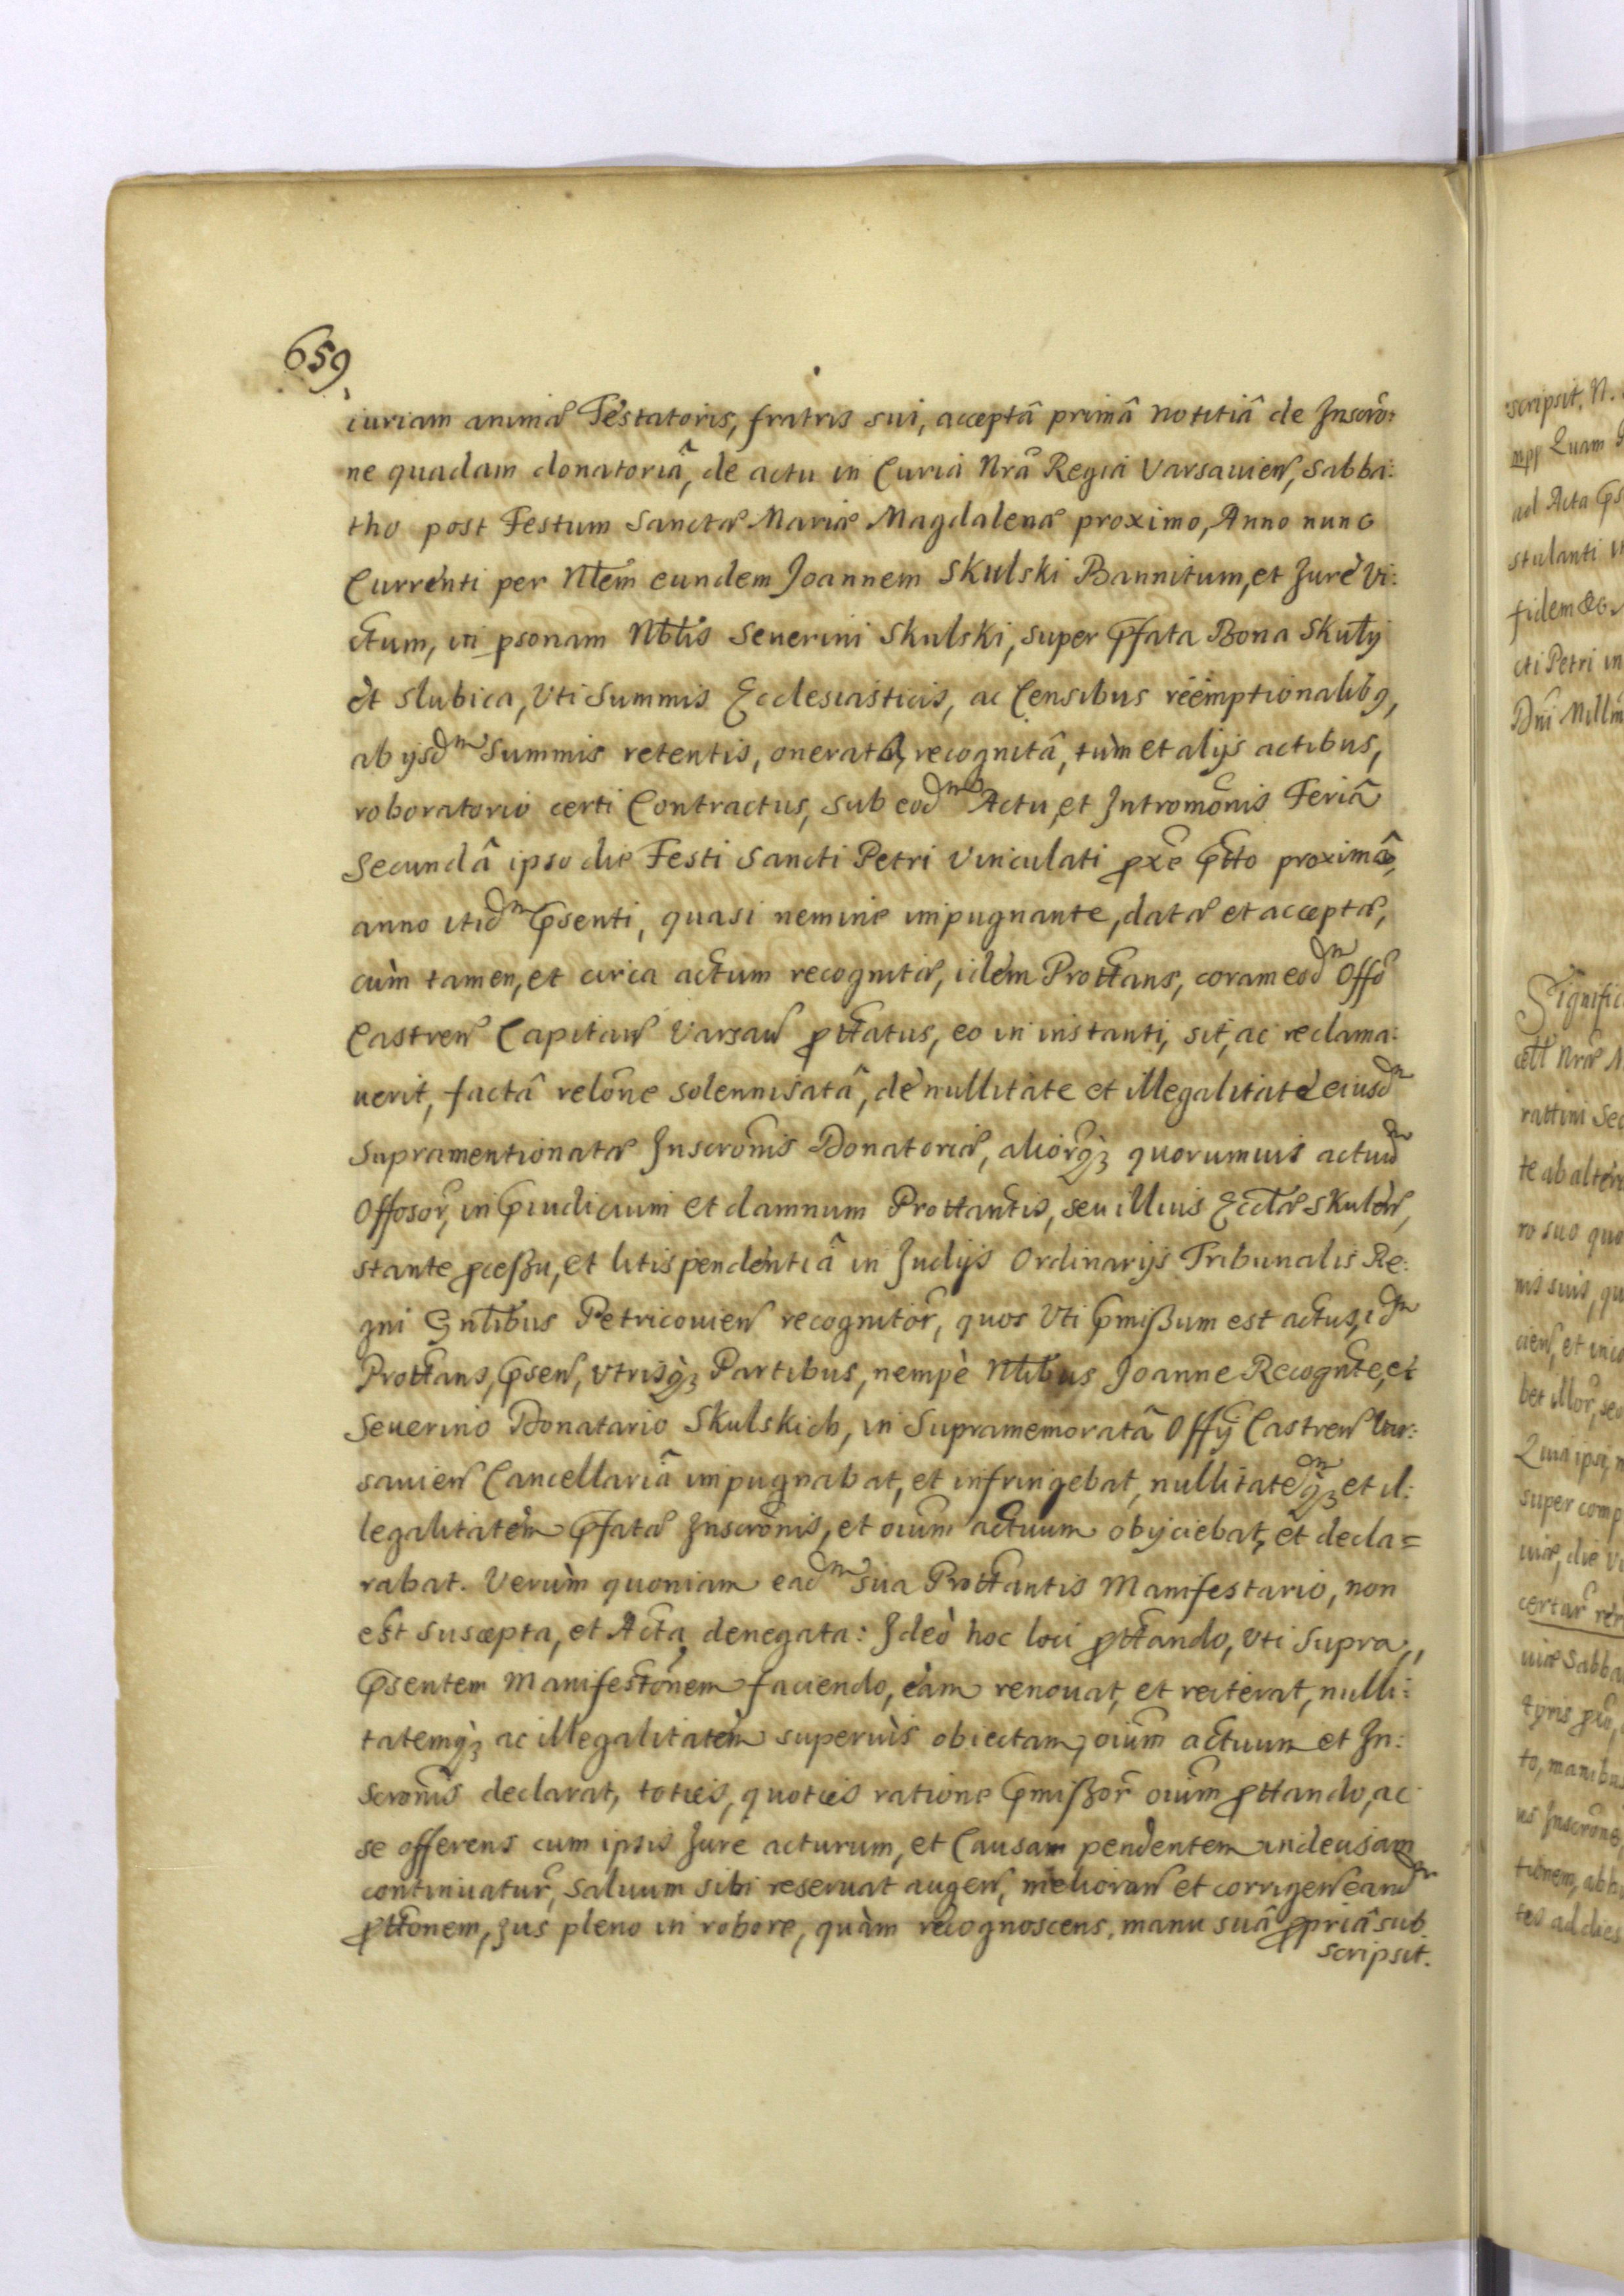 659
iuriam animæ Testatoris, fratris sui, acceptâ primâ notitiâ de Inscrõ:
ne quadam donatoriâ, de actu in Curia Nrã Regia Varsavien, Sabba:
tho post Festum Sanctæ Mariæ Magdalenæ proximo, Anno nunc
Currenti per Nblem eundem Joannem Skulski Bannitum, et Jure Vi:
ctum, in psonam Nblis Seuerini Skulski, super pfata Bona Skuły
et Slubica, Vti Summis Ecclesiasticis, ac Censibus réémptionalibq,
ab ijsdm Summis retentis, onerata, recognitâ, tùm et alijs actibus,
roboratorio certi Contractus, sub eodm Actu, et Intromõnis Feriâ
Secundâ ipso die Festi Sancti Petri Vinculati pxe ptto proximâ,
anno itidm psenti, quasi nemine impugnante, datæ et acceptæ,
cùm tamen, et circa actum recognitæ, idem Prottans, coram eodm Offo
Castren Capitan Varsaw pttatus, eo in instanti, sit, ac reclama:
uerit, factâ relõne solennisatâ, de nullitate et illegalitate eiusdm
Supramentionatæ Inscrõnis Donatoriæ, aliorq3 quorumuis actuu
Offosor, in piudicium et damnum Prottantis, seu illius Ecclæ Skulen,
stante pceßu, et litispendentiâ in Judijs Ordinarijs Tribunalis Re:
gni Gnlibus Petricouien recognitor, quos Vti pmißum est actus, idm
Prottans, psen, Vtrisq3 Partibus, nempè Nblibus Joanne Recognte, et
Seuerino Donatario Skulskich, in Supramemoratâ Offij Castren Var:
sauien Cancellariâ impugnabat, et infringebat, nullitatemq3 et il:
legalitatem pfatæ Inscrõnis, et oium actuum obijciebat, et decla=
rabat. Verùm quoniam eadm sua Prottantis Manifestatio, non
est suscepta, et Acta denegata: Ideò hoc loci pttando, Vti Supra,
psentem Manifestõnem faciendo, eam renouat, et reiterat, nulli:
tatemq3 ac illegalitatem superuìs obiectam, oium actuum et In:
scrõnis declarat, toties, quoties ratione pmißor oium pttando, ac
se offerens cum ipsis Jure acturum, et Causam pendentem
continuatur, Saluum sibi reseruat augen, melioran et corrigen eandm
pttonem, Jus pleno in robore, quàm recognoscens, manu suâ ppriâ sub
scripsit.